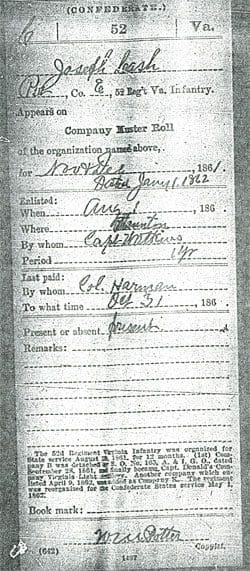 (CONFEDERATE.)
C 52 Va.
Joseph Cash
Pvt, Co. C, 52 Reg't Va. Infantry.
Appears on
Company Muster Roll
of the organization named above,
for Nov & Dec, 1861.
Dated Jany 1, 1862
Enlisted:
When Aug 1, 186
Where Staunton
By whom Capt Watkins
Period 1 yr
Last paid:
By whom Col. Harman
To what time Oct 31, 186
Present or absent present
Remarks:
The 52d Regiment Virginia Infantry was organized for
State service August 1861, for 12 months. (1st) Com-
pany B was detached S. O. No. 103, A. & I. G. O., dated
September 28, 1861, finally became Capt. Donald's Com-
pany Virginia Light Another company which en-
listed April 9, 1862, as Company K. The regiment
was reorganized for the Confederate States service May 1,
1862.
Book mark:
(642) 1427 Copyist.